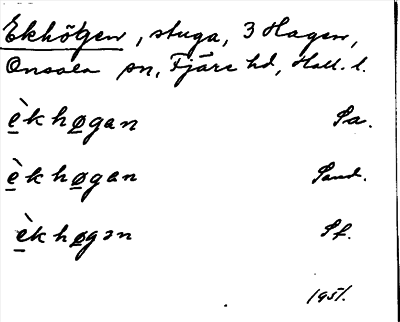 Ekhögen, stuga, 3 Hagen,
Onsala sn, Fjäre hd, Hall. l.
èkhøgan Sa.
èkhøgan Sand.
èkhøgən Sf.
1951.